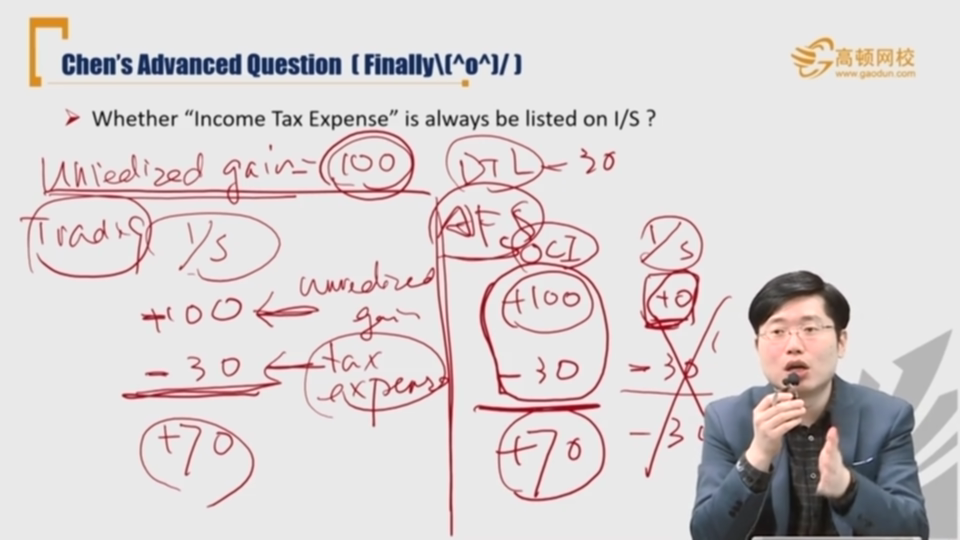 Chen's Advanced Question ( Finally\(^o^)/ )
高顿网校
www.gaodun.com
➤ Whether “Income Tax Expense” is always be listed on I/S ?
Unriedized gain= 100 DTL ← 30
Trading I/S AFS OCI I/S
+100 ← unredized gain +100 +0
- 30 ← tax expense - 30 - 30
+70 +70 - 30